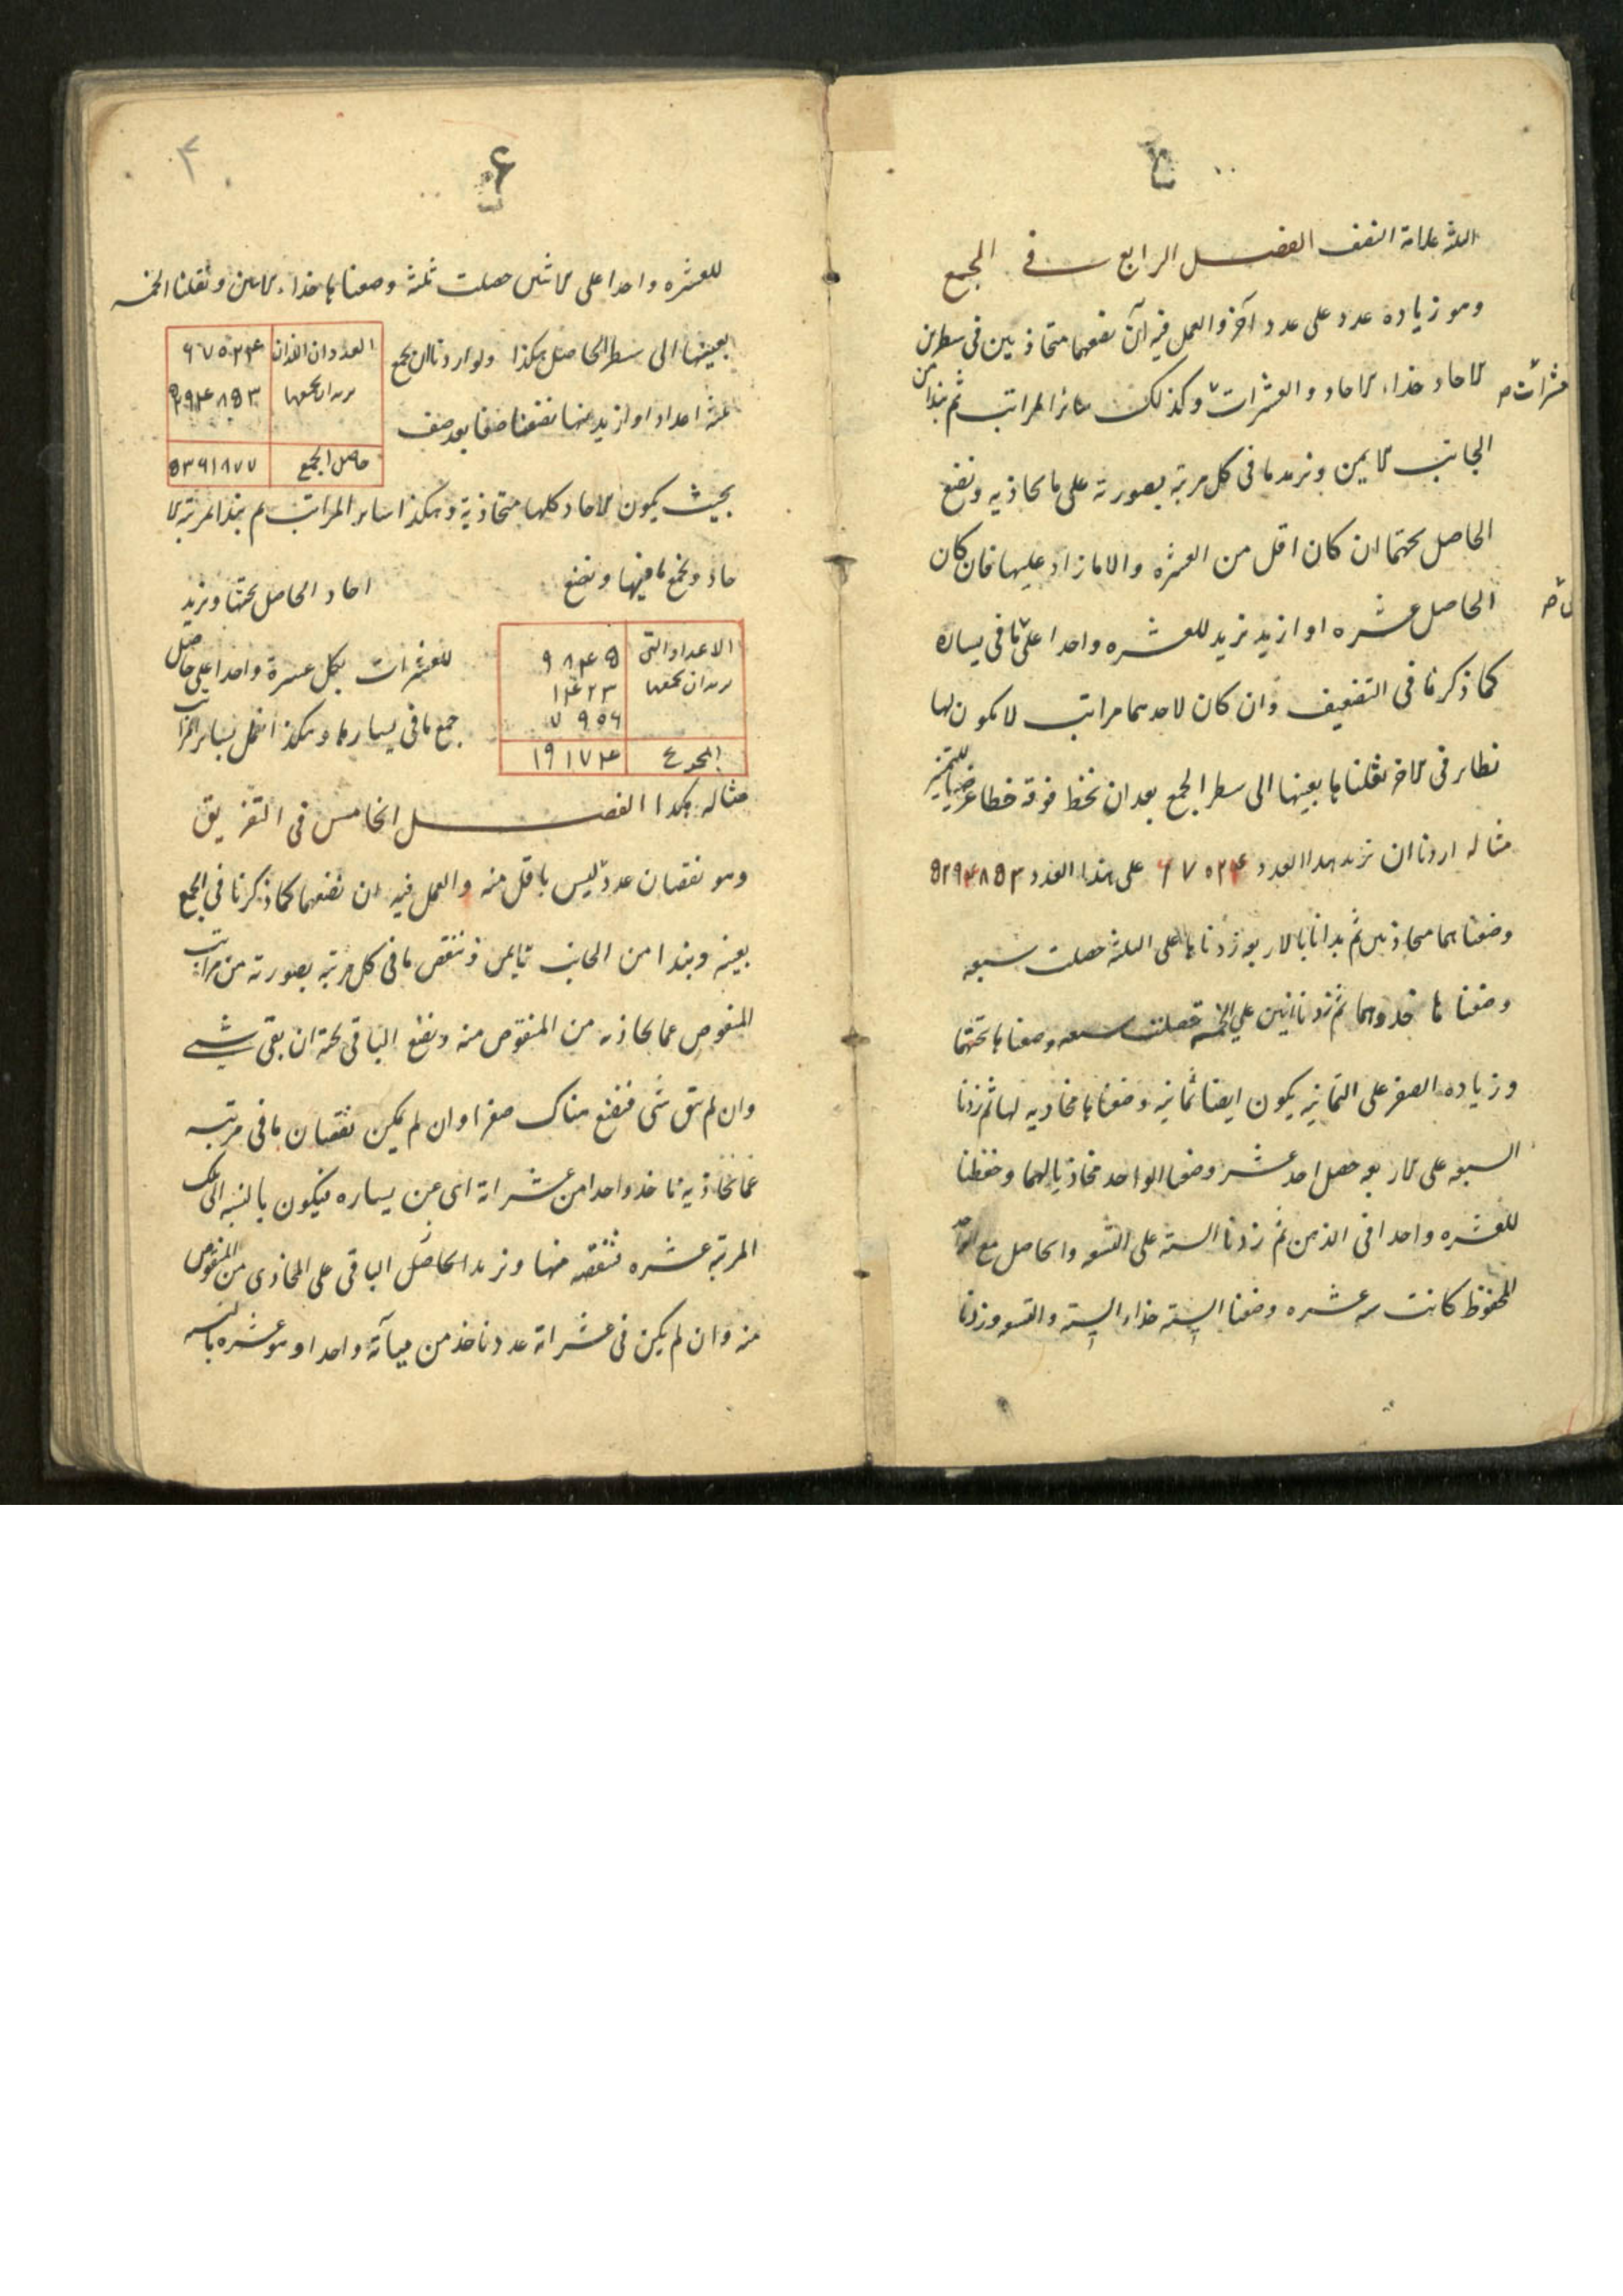 الثلثة علامة النصف الفصل الرابع في الجمع
وهو زياده عدد على عدد آخر والعمل فيه ان نضعهما متحاذيين في سطرين
الاحاد حذاء الاحاد والعشرات وكذلك سائر المراتب ثم نبدا من
عشرات صح
الجانب الايمن ونزيد ما في كل مرتبه بصورته على ما يحاذيه ونضع
الحاصل تحتها ان كان اقل من العشره والا ما زاد عليها فان كان
الحاصل عشره او ازيد نزيد للعشره واحدا على ما في يساره
كما ذكرنا في التضعيف وان كان لاحدهما مراتب لا يكون لها
نظاير في الاخر نقلناها بعينها الى سطر الجمع بعد ان نخط فوقه خطا عرضيا للتميز
مثاله اردنا ان نزيد هذا العدد ٦٧٥٢٤ على هذا العدد ٥٢٩٤٨٥٣
وضعناهما متحاذيين ثم بدانا بالاربعه زدناها على الثلثه حصلت سبعه
وضعناها حذوهما ثم زدنا اثنين على الخمسه حصلت سبعه وضعناها تحتهما
وزياده الصفر على الثمانيه يكون ايضا ثمانيه وضعناها محاذيه لها ثم زدنا
السبعه على الاربعه حصل احد عشر وضعنا الواحد محاذيا لهما وحفظنا
للعشره واحدا في الذهن ثم زدنا السته على التسعه والحاصل مع الواحد
المحفوظ كانت سته عشره وضعنا السته حذاء السته والتسعه وزدنا
٤
للعشره واحدا على الاثنين حصلت ثلثة وضعناها حذاء الاثنين ونقلنا الخمسه
بعينها الى سطر الحاصل هكذا ولو اردنا ان نجمع
ثلثة اعداد او ازيد منها نضعها صفا بعد صف
العددان اللذان ٦٧٥٢٤
نريد ان نجمعهما ٥٢٩٤٨٥٣
حاصل الجمع ٥٣٦١٨٧٧
بحيث يكون الاحاد كلها متحاذية وهكذا ساير المراتب ثم نبدا بمرتبة الا
حاد ونجمع ما فيها ونضع احاد الحاصل تحتها ونزيد
للعشرات بكل عشرة واحدا على حاصل
جمع ما في يسارها وهكذا نعمل بساير المراتب
الاعداد التي ٩٨٤٥
نريد ان نجمعها ١٤٢٣
٧٩٥٦
المجموع ١٩١٧٤
مثاله هكذا الفصل الخامس في التفريق
وهو نقصان عدد ليس باقل منه والعمل فيه ان نضعهما كما ذكرنا في الجمع
بعينه ونبدا من الجانب الايمن وننقص ما في كل مرتبه بصورته من مراتب
المنقوص مما يحاذيه من المنقوص منه ونضع الباقي تحته ان بقي شي
وان لم يبق شي فنضع هناك صفرا وان لم يمكن نقصان ما في مرتبه
مما يحاذيه ناخذ واحدا من عشراته اي عن يساره فيكون بالنسبه الى تلك
المرتبه عشره فننقصه منها ونزيد الحاصل الباقي على المحاذي من المنقوص
منه وان لم يكن في عشراته عدد ناخذ من مياته واحدا وهو عشره بالنسبه